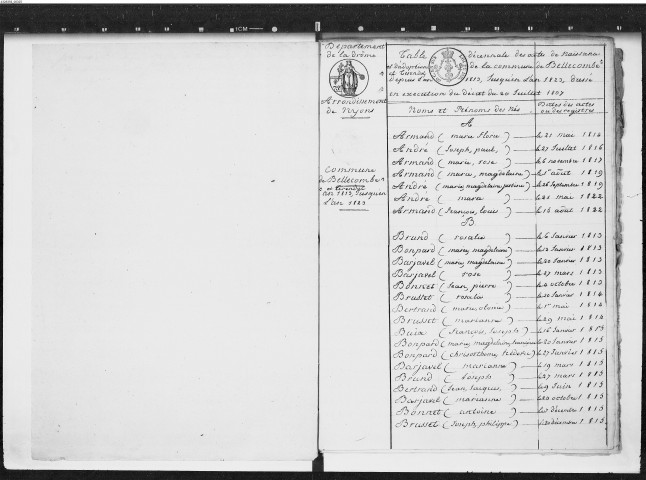 Département
de la drôme
Arrondissement
de Nyons
Commune
de Bellecombe
et Tarendol
an 1813, jusqu'en
l'an 1823
Table décennale des actes de naissance
et d'adoption de la commune de Bellecombe
et Tarendol
depuis l'an 1813, jusqu'en l'an 1823, dressé
en execution du décret du 20 juillet 1807
Noms et Prénoms des Nés | Dates des actes ou des registres
A
Armand ( marie flora ) le 21 mai 1814
André ( joseph, paul, ) le 27 Juillet 1816
Armand ( marie, rose ) le 6 novembre 1817
Armand ( marie, magdelaine ) le 1er août 1819
André ( marie, magdelaine, justine ) le 26 septembre 1819
André ( marie ) le 21 mai 1822
Armand ( françois, louis ) le 15 août 1822
B
Brund ( rosalie ) le 6 Janvier 1813
Bonpard ( marie, magdelaine ) le 12 Janvier 1813
Barjavel ( marie, magdelaine ) le 20 Janvier 1813
Barjavel ( rose ) le 27 mars 1813
Bonnet ( jean, pierre ) le 4 octobre 1813
Brusset ( rosalie ) le 10 Janvier 1814
Bertrand ( marie ) le 1er mai 1814
Brusset ( marianne ) le 29 mai 1814
Buix ( françois, joseph ) le 16 Janvier 1815
Bonpard ( marie, magdelaine ) le 20 Janvier 1815
Bonpard ( ) le 27 Janvier 1815
Barjavel ( marianne ) le 19 mars 1815
Brund ( joseph ) le 27 mars 1815
Bertrand ( jean, jacques, ) le 9 Juin 1815
Barjavel ( marianne ) le 20 octobre 1815
Bonnet ( antoine ) le décembre 1815
Brusset ( joseph, philippe ) le décembre 1815